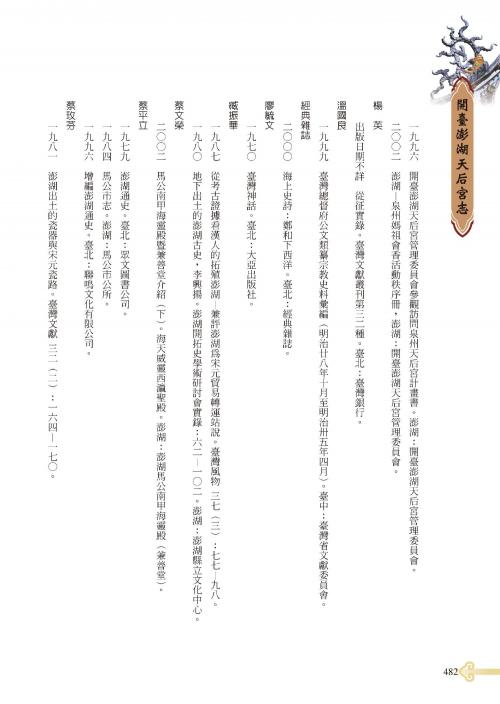 開臺澎湖天后宮志
一九九六　開臺澎湖天后宮管理委員會參觀訪問泉州天后宮計畫書。澎湖：開臺澎湖天后宮管理委員會。
二○○二　澎湖—泉州媽祖會香活動秩序冊，澎湖：開臺澎湖天后宮管理委員會。
楊　英
出版日期不詳　從征實錄。臺灣文獻叢刊第三二種。臺北：臺灣銀行。
溫國良
一九九九　臺灣總督府公文類纂宗教史料彙編（明治廿八年十月至明治卅五年四月）。臺中：臺灣省文獻委員會。
經典雜誌
二○○○　海上史詩：鄭和下西洋。臺北：經典雜誌。
廖毓文
一九七○　臺灣神話。臺北：大亞出版社。
臧振華
一九八七　從考古證據看漢人的拓殖澎湖　兼評澎湖為宋元貿易轉運站說。臺灣風物　三七（三）：七七—九八。
一九八○　地下出土的澎湖古史，李興揚。澎湖開拓史學術研討會實錄：六二—一○二。澎湖：澎湖縣立文化中心。
蔡文榮
二○○二　馬公南甲海靈殿暨兼善堂介紹（下）。海天威靈西瀛聖殿。澎湖：澎湖馬公南甲海靈殿（兼善堂）。
蔡平立
一九七九　澎湖通史。臺北：眾文圖書公司。
一九八四　馬公市志。澎湖：馬公市公所。
一九九六　增編澎湖通史。臺北：聯鳴文化有限公司。
蔡玫芬
一九八一　澎湖出土的瓷器與宋元瓷路。臺灣文獻　三二（二）：一六四—一七○。
482